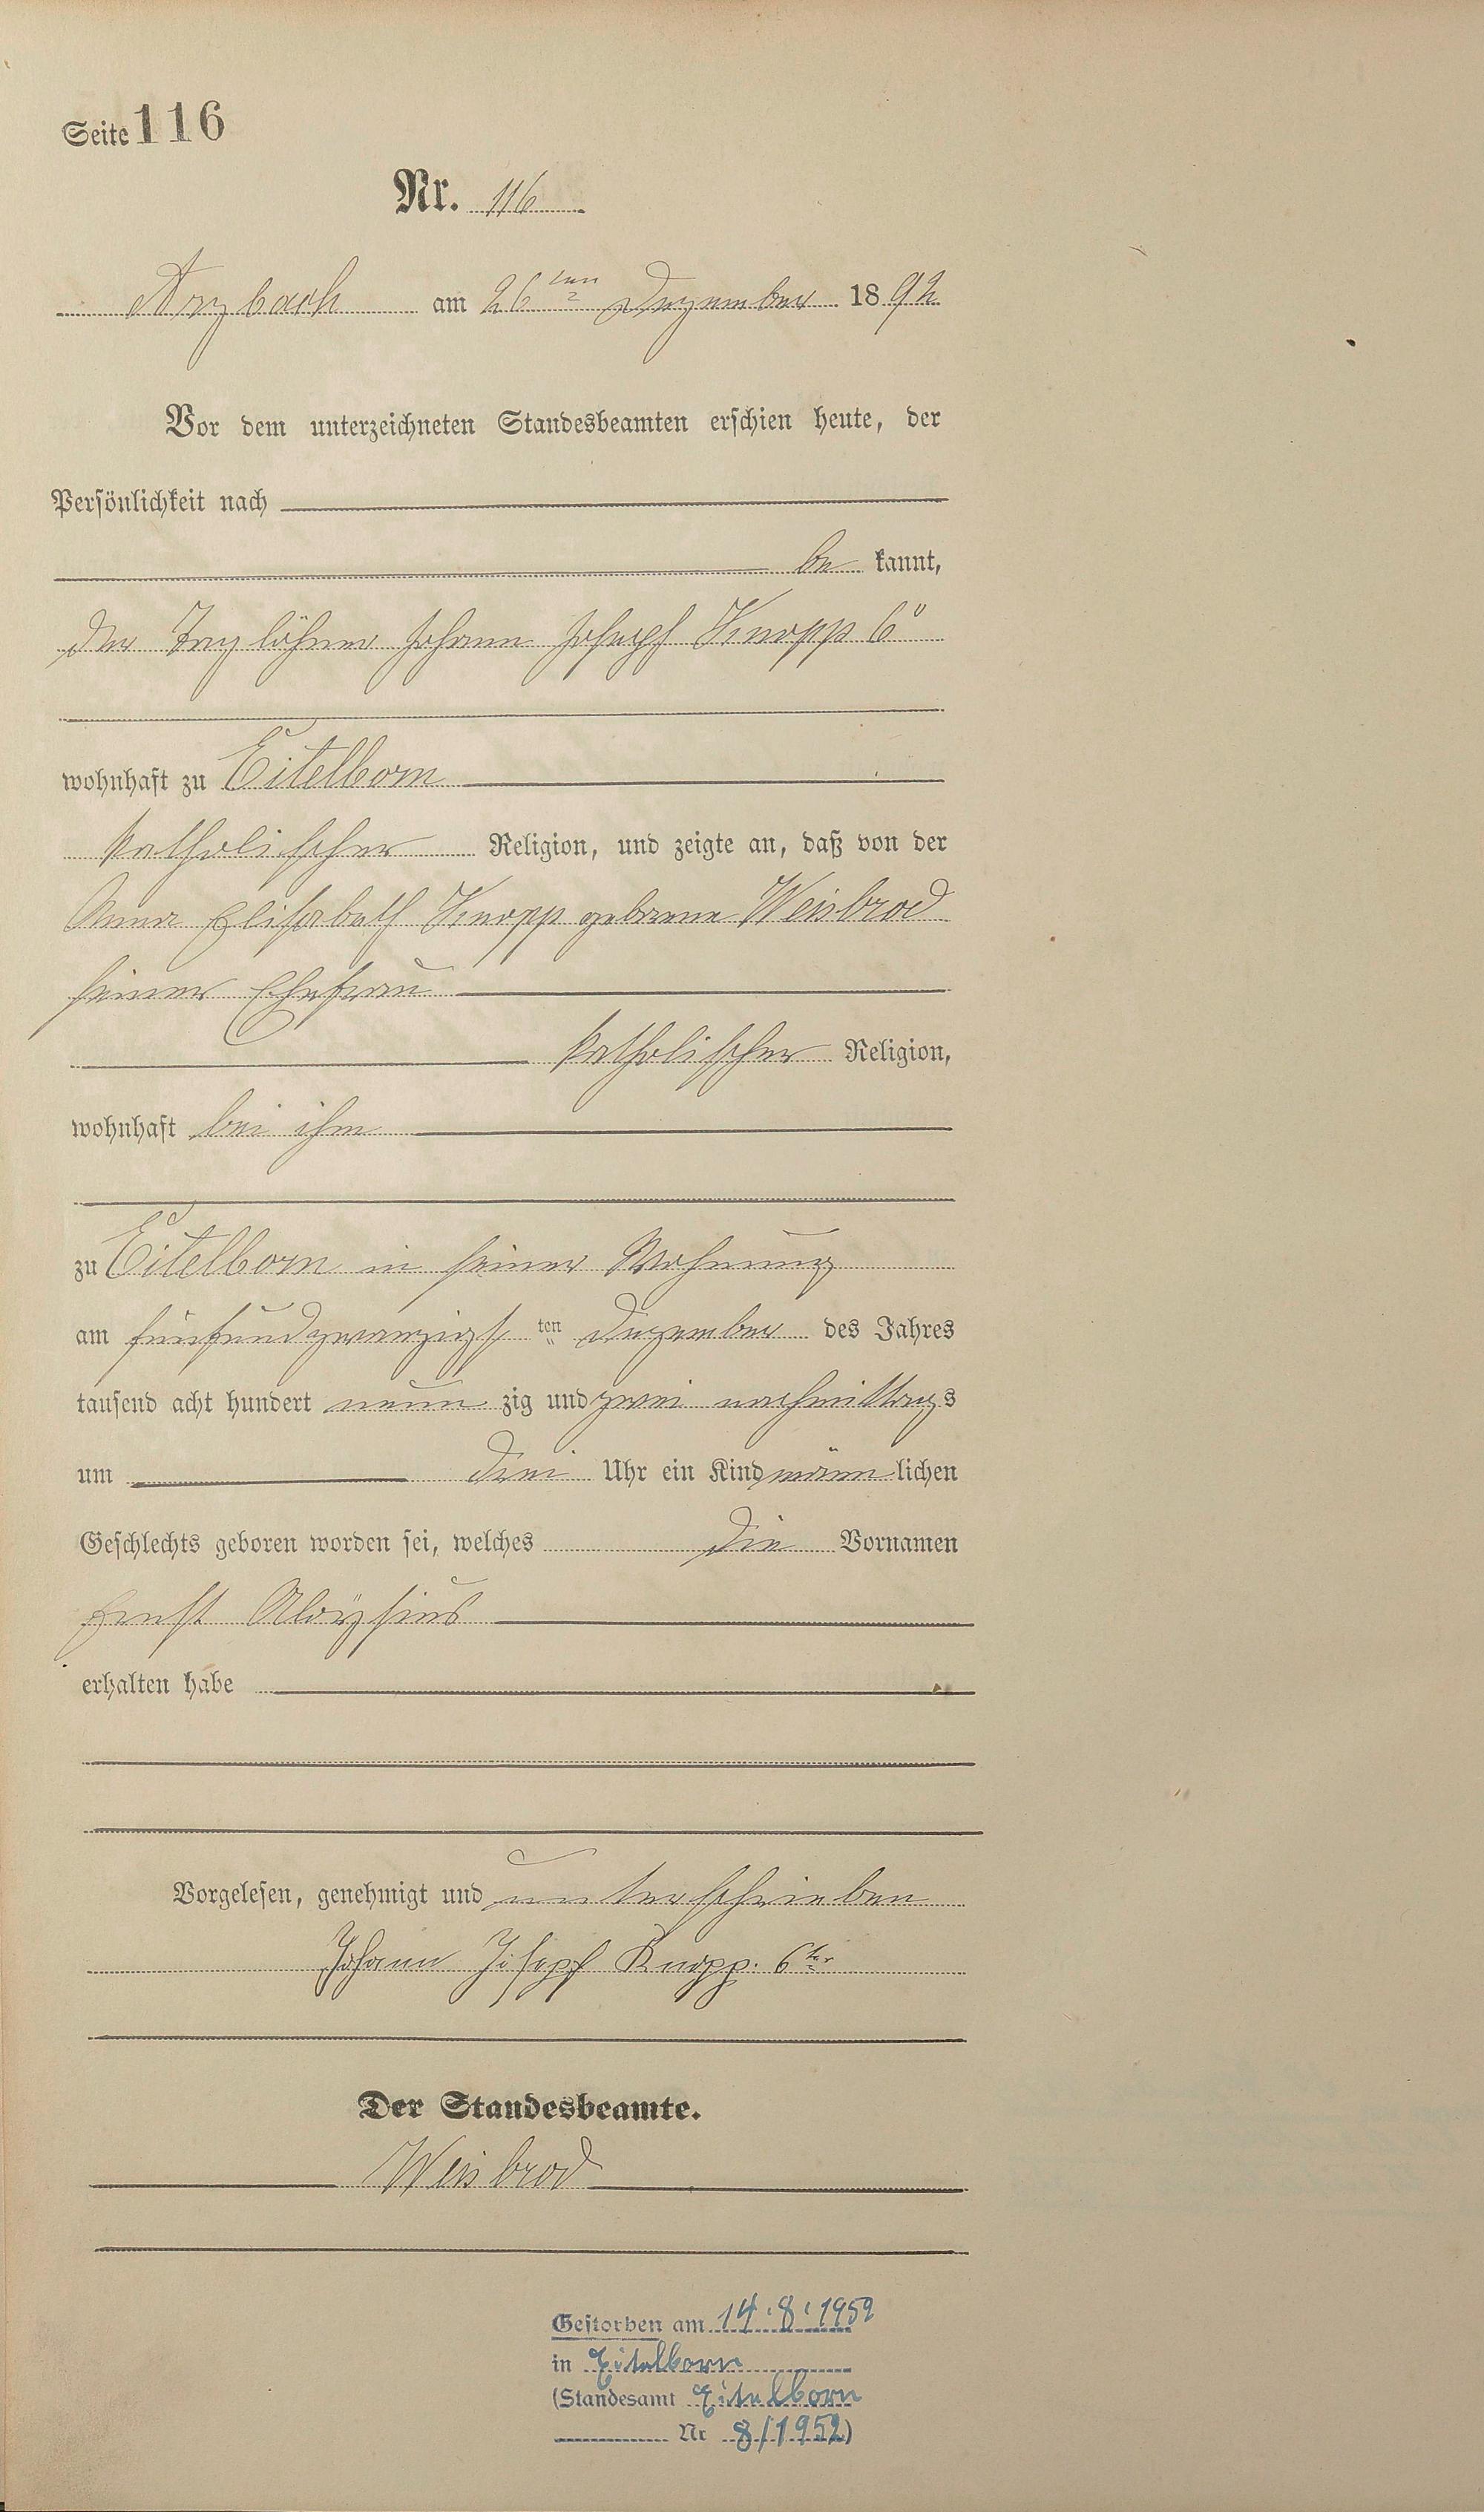 Seite 116
Nr. 116
Arzbach am 26ten Dezember 1892
Vor dem unterzeichneten Standesbeamten erschien heute, der
Persönlichkeit nach
be kannt,
der Taglöhner Johann Joseph Knopp 6r
wohnhaft zu Eitelborn
katholischer Religion, und zeigte an, daß von der
Anna Elisabeth Knopp geborene Weisbrod
seiner Ehefrau
katholischer Religion,
wohnhaft bei ihm
zu Eitelborn in seiner Wohnung
am fünfundzwanzigsten Dezember des Jahres
tausend acht hundert neun zig und zwei nachmittags
um drei Uhr ein Kind männlichen
Geschlechts geboren worden sei, welches die Vornamen
Ernst Aloÿsius
erhalten habe
Vorgelesen, genehmigt und unterschrieben
Johann Josepf Knopp. 6ter
Der Standesbeamte.
Weisbrod
Gestorben am 14.8.1952
in Eitelborn
(Standesamt Eitelborn
Nr 8/1952)